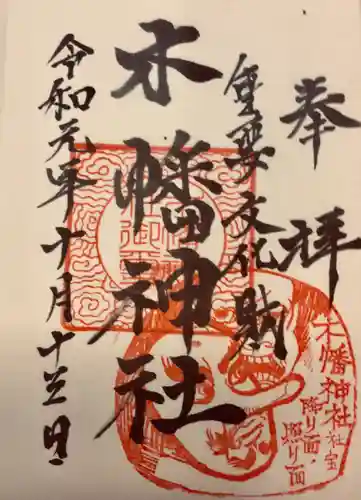 奉拝
重要文化財
木幡神社
令和元年十月十三日
木幡神社
社宝
降り面・
照り面